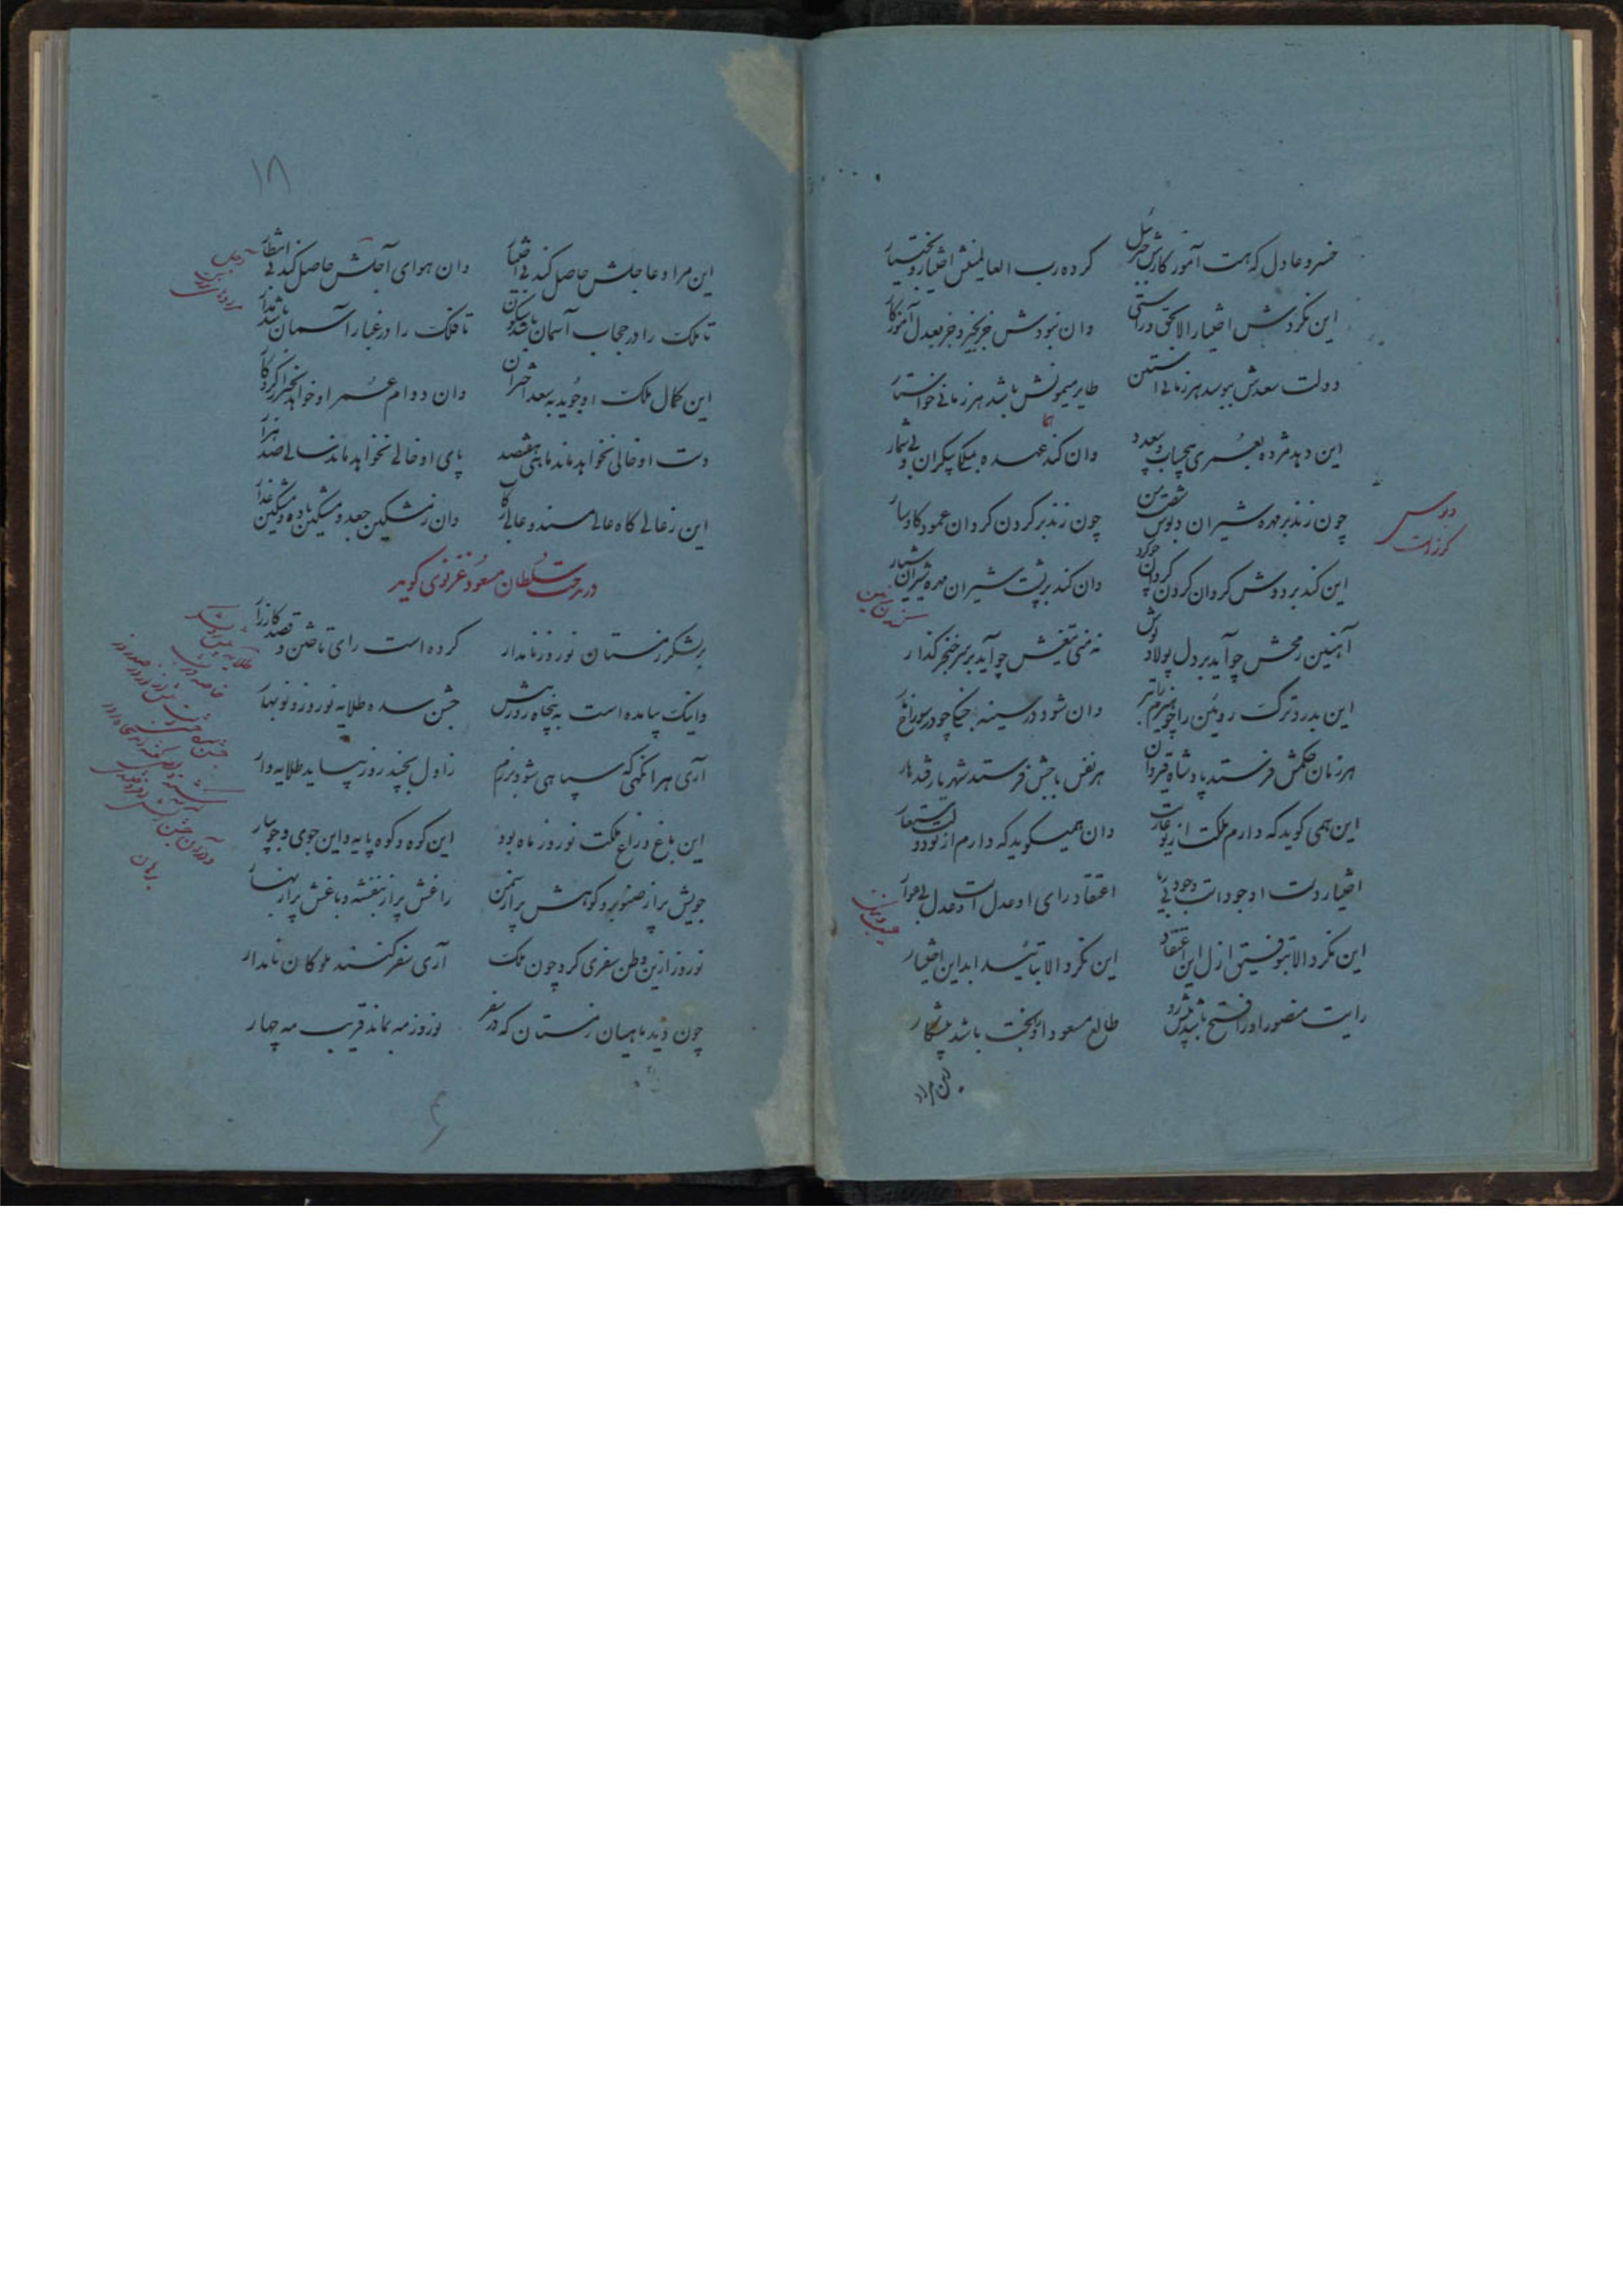 خسرو عادل که هست آموزگارش جبرئیل کرده رب العالمینش اختیار و بختیار
این نکردش اختیار الا بحق و راستی وان نبودش جز بخیر و جز بعدل آموزگار
دولت سعدش ببوسد هر زمانی آستین طایر میمونش باشد هر زمانی خواستار
این دهد مژده بعمری بیحساب و بیعدد وان کند عهده بملکی بیکران و بی شمار
چون زند بر مهره شیران دبوس شصت من چون زند بر گردن گردان عمود گاوسار
این کند بر دوش گردان گردن گردان چو گرد وان کند بر پشت شیران مهره شیران شیار
آهنین رمحش چو آید بر دل پولاد پوش نه منی تیغش چو آید بر سر خنجر گذار
این بدرد ترک روئین را چو هیزم را تبر وان شود در سینه جنگی چو در سوراخ مار
هر زمان حکمش فرستد پادشاه قیروان هر نفس باجش فرستد شهریار قندهار
این همی گوید که دارم ملکت از تو عاریت وان همیگوید که دارم از تو دولت مستعار
اختیار دست او جود است جود بی ریا اعتقاد رای او عدل است و عدل بی عوار
این نکرد الا بتوفیق ازل این اعتقاد این نکرد الا بتائید ابد این اختیار
رایت منصور او را فتح باشد پیش رو طالع مسعود او را بخت باشد پیشکار
این مراد
دبوس
گرز است
۱۸
این مراد عاجلش حاصل کند بی اختیار وان هوای آجلش حاصل کند بی انتظار
تا ملک را در حجاب آسمان باشد سکون تا فلک را در غبار آسمان باشد مدار
این کمال ملک او جوید بسعد اختران وان دوام عمر او خواهد بخیر کردگار
دست او خالی نخواهد ماند ماهی هفتصد پای او خالی نخواهد ماند سالی صد هزار
این ز عالی گاه عالی مسند و عالی رکاب وان ز مشکین جعد و مشکین باده و مشکین عذار
در مدحت سلطان مسعود غزنوی گوید
بر لشکر زمستان نوروز نامدار کرده است رای تاختن و قصد کارزار
واینک بیامده است به پنجاه روز پیش جشن سده طلایه نوروز و نوبهار
آری هر آنگهی که سپاهی شود برزم ز اول بچند روز بیاید طلایه وار
این باغ و راغ ملکت نوروز ماه بود این کوه و کوه پایه و این جوی و جویبار
جویش پر از صنوبر و کوهش پر از سمن راغش پر از بنفشه و باغش پر از بهار
نوروز ازین وطن سفری کرد چون ملک آری سفر کنند ملوکان نامدار
چون دید ماهیان زمستان که در سفر نوروز مه بماند قریب مه چهار